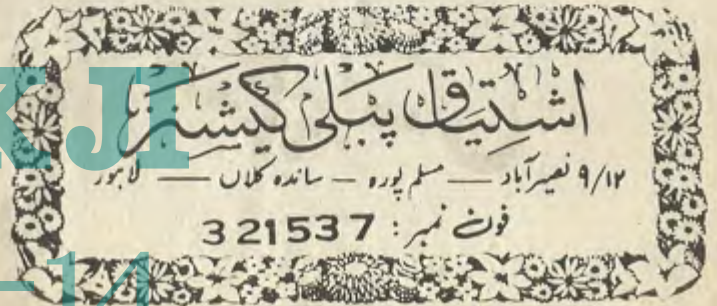 اشتیاق پبلی کیشنز
۹/۱۲ نصیر آباد — مسلم پورہ — ساندہ کلاں — لاہور
فون نمبر : 321537